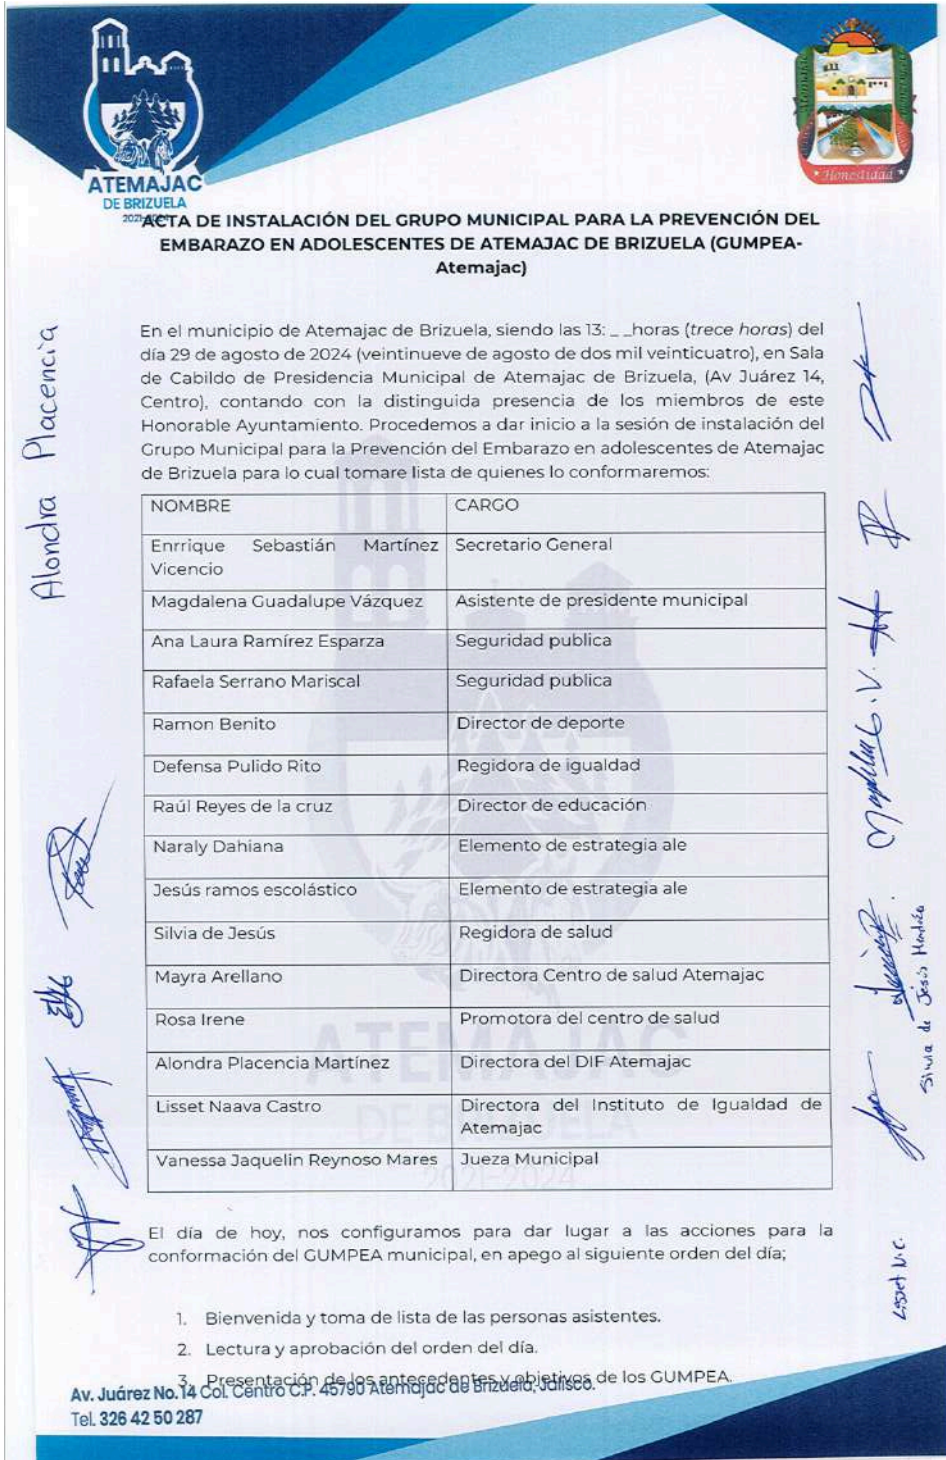 ATEMAJAC
DE BRIZUELA
Honestidad
ACTA DE INSTALACIÓN DEL GRUPO MUNICIPAL PARA LA PREVENCIÓN DEL
EMBARAZO EN ADOLESCENTES DE ATEMAJAC DE BRIZUELA (GUMPEA-
Atemajac)
En el municipio de Atemajac de Brizuela, siendo las 13: _ _horas (trece horas) del
día 29 de agosto de 2024 (veintinueve de agosto de dos mil veinticuatro), en Sala
de Cabildo de Presidencia Municipal de Atemajac de Brizuela, (Av Juárez 14,
Centro), contando con la distinguida presencia de los miembros de este
Honorable Ayuntamiento. Procedemos a dar inicio a la sesión de instalación del
Grupo Municipal para la Prevención del Embarazo en adolescentes de Atemajac
de Brizuela para lo cual tomare lista de quienes lo conformaremos:
NOMBRE CARGO
Enrrique Sebastián Martínez Secretario General
Vicencio
Magdalena Guadalupe Vázquez Asistente de presidente municipal
Ana Laura Ramírez Esparza Seguridad publica
Rafaela Serrano Mariscal Seguridad publica
Ramon Benito Director de deporte
Defensa Pulido Rito Regidora de igualdad
Raúl Reyes de la cruz Director de educación
Naraly Dahiana Elemento de estrategia ale
Jesús ramos escolástico Elemento de estrategia ale
Silvia de Jesús Regidora de salud
Mayra Arellano Directora Centro de salud Atemajac
Rosa Irene Promotora del centro de salud
Alondra Placencia Martínez Directora del DIF Atemajac
Lisset Naava Castro Directora del Instituto de Igualdad de
Atemajac
Vanessa Jaquelin Reynoso Mares Jueza Municipal
ATEMAJAC
DE BRIZUELA
2021-2024
El día de hoy, nos configuramos para dar lugar a las acciones para la
conformación del GUMPEA municipal, en apego al siguiente orden del día;
1. Bienvenida y toma de lista de las personas asistentes.
2. Lectura y aprobación del orden del día.
3. Presentación de los antecedentes y objetivos de los GUMPEA.
Av. Juárez No. 14 Col. Centro C.P. 45790 Atemajac de Brizuela, Jalisco.
Tel. 326 42 50 287
Alondra Placencia
Silvia de Jesús
Lisset N.C.